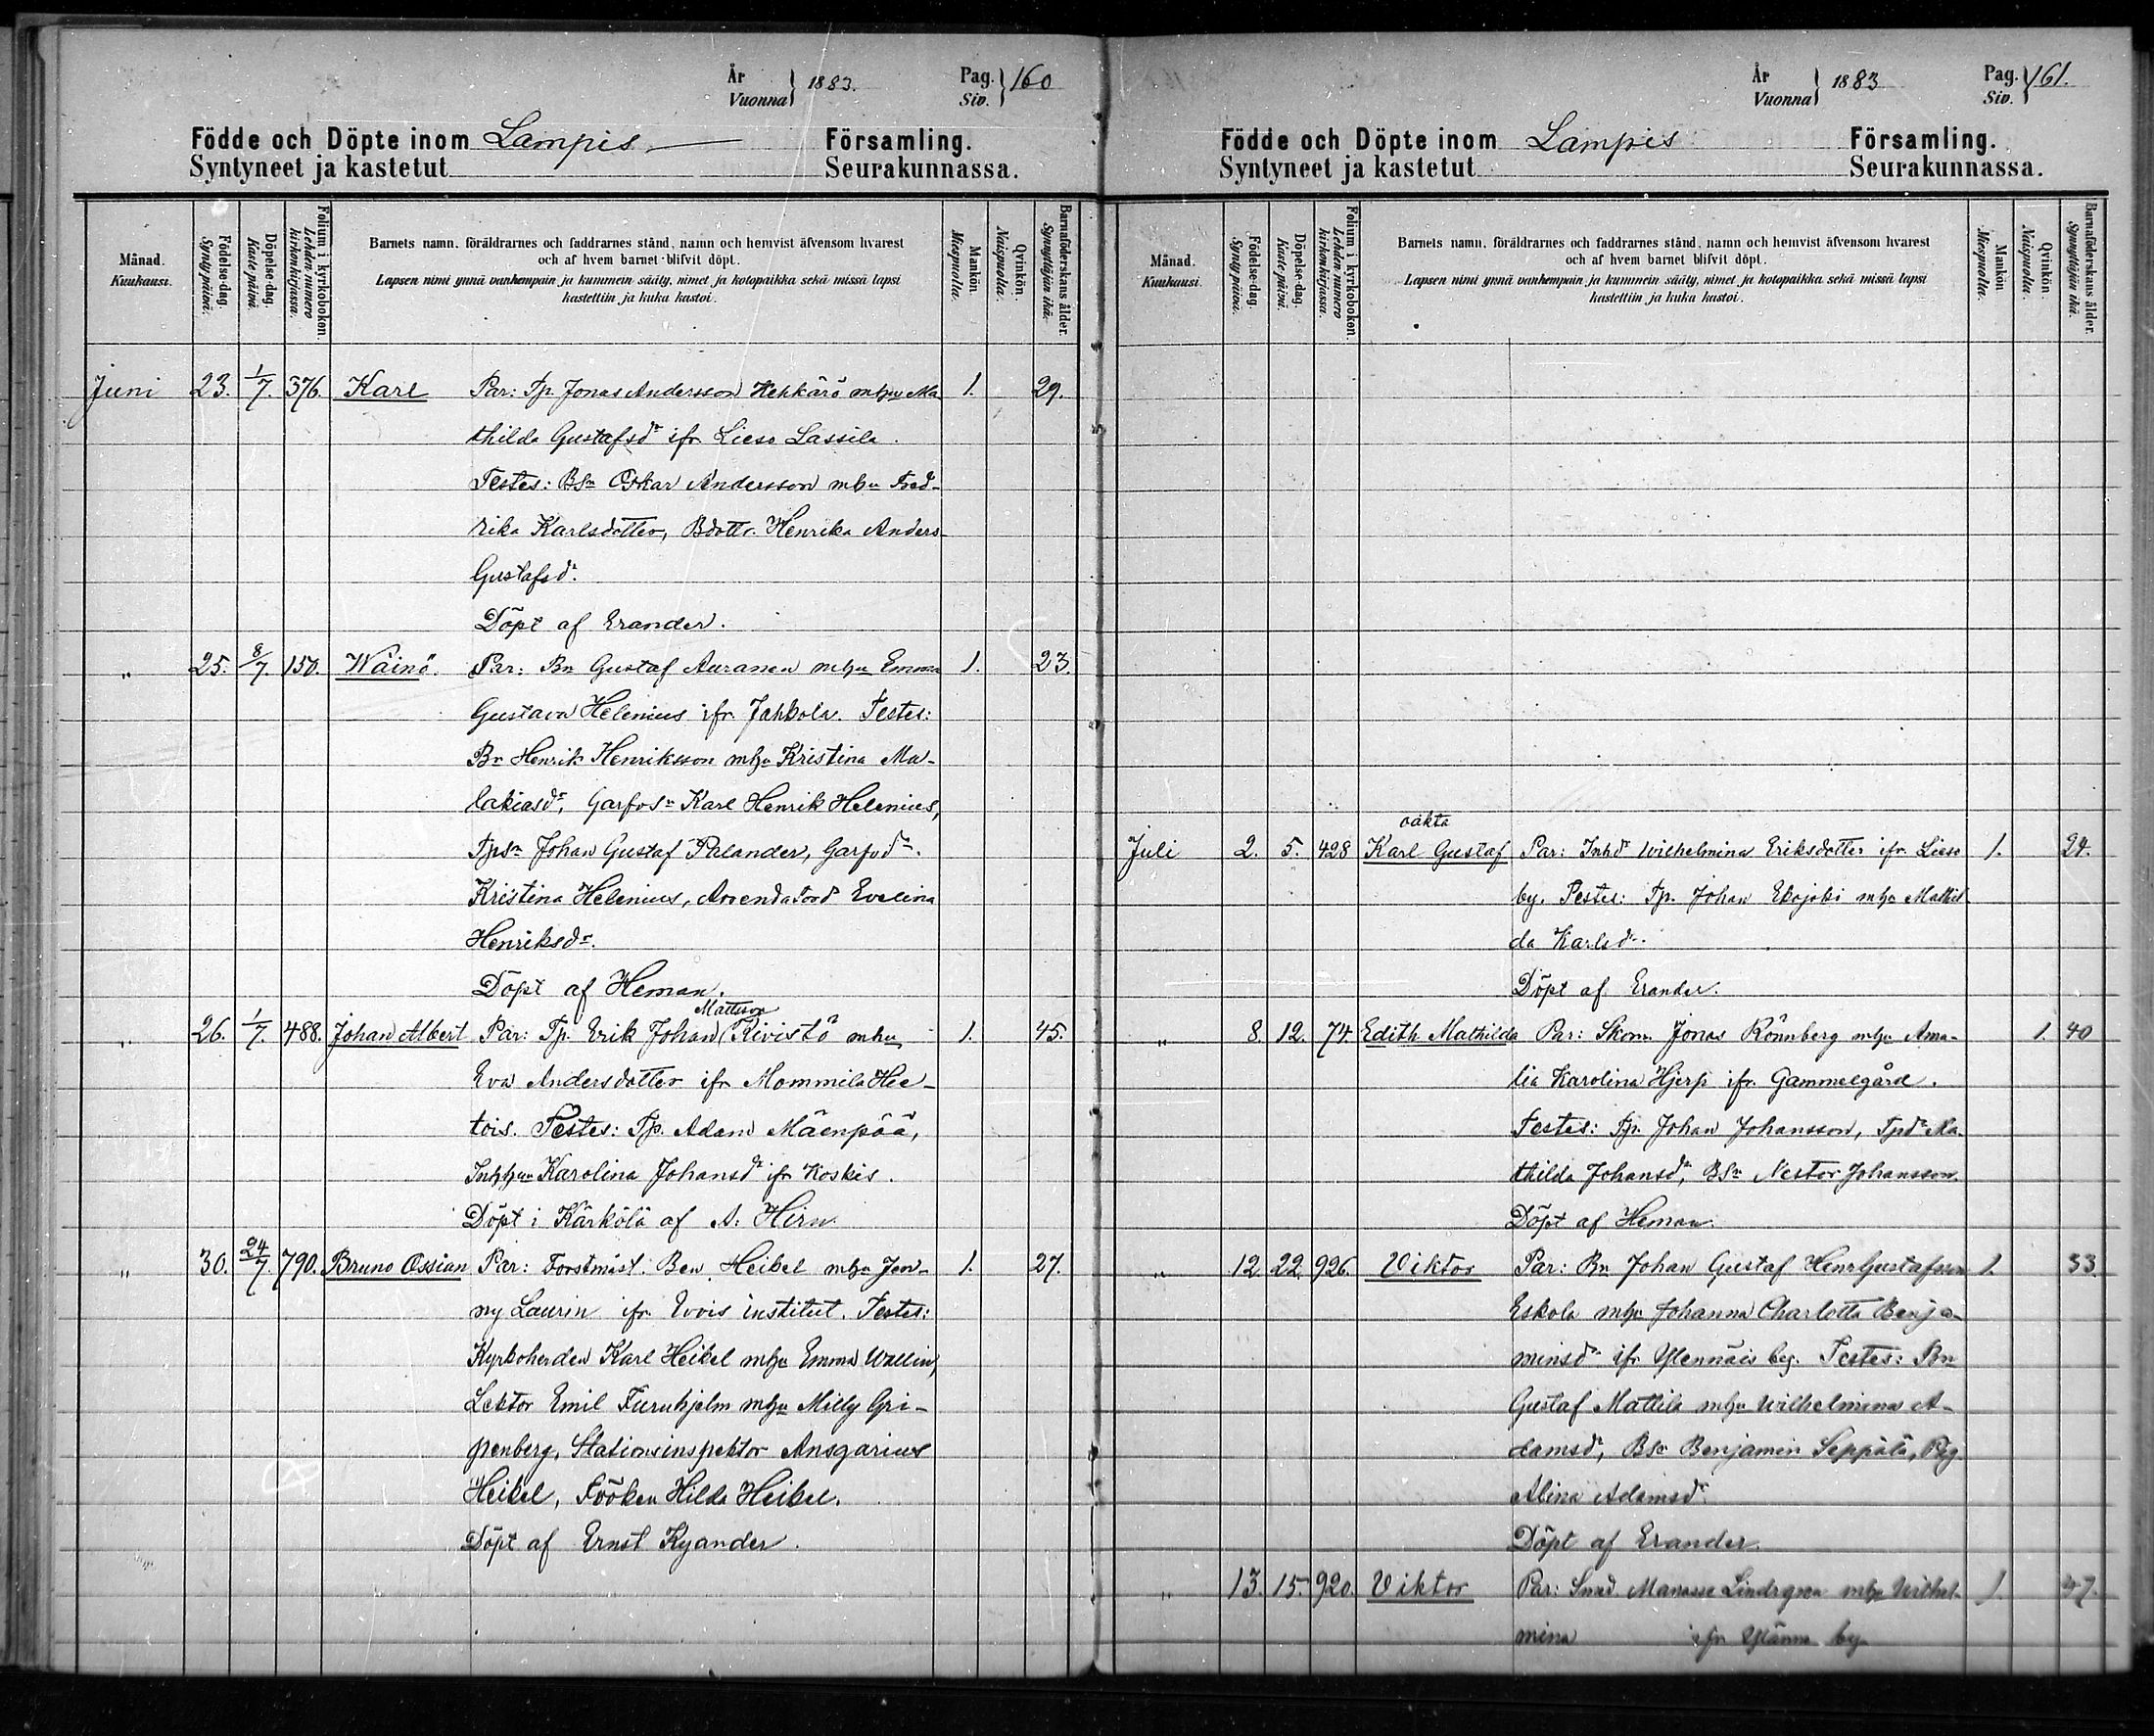 År
Vuonna } 1883.
Pag.
Siv. } 160
Födde och Döpte inom Lampis Församling.
Syntyneet ja kastetut Seurakunnassa.
Månad.
Kuukausi.
Födelse-dag.
Synty päivä.
Döpelse-dag.
Kaste-päivä.
Folium i kyrkoboken.
Lehden numero
kirkonkirjassa.
Barnets namn, föräldrarnes och faddrarnes stånd, namn och hemvist äfvensom hvarest
och af hvem barnet blifvit döpt.
Lapsen nimi ynnä vanhempain ja kummein sääty, nimet ja kotopaikka sekä missä lapsi
kastettiin ja kuka kastoi.
Mankön.
Miespuolia.
Qvinkön.
Naispuolia.
Barnaföderskans ålder.
Synnyttäjän ikä.
Juni 23. 1/7. 376. Karl Par: Tp. Jonas Andersson Hehkärö mhu Ma 1. 29.
thilda Gustafsdr ifr. Lieso Lassila.
Testes: BSn Oskar Andersson mhu Fred-
rika Karlsdotter, Bdottr. Henrika Anders-
Gustafsdr.
Döpt af Erander.
" 25. 8/7. 150. Wäinö. Par: Bn Gustaf Auranen mhu Emma 1. 23.
Gustava Helenius ifr. Jahkola. Testes:
Bn Henrik Henriksson mhu Kristina Ma-
lakiasdr, Garfvosn Karl Henrik Helenius,
Tpsn Johan Gustaf Palander, Garfvodr.
Kristina Helenius, Arendatord Evelina
Henriksdr.
Döpt af Heman.
Mattsson
" 26. 1/7. 488. Johan Albert Par: Tp. Erik Johan (Kivistö mhu 1. 45.
Eva Andersdotter ifr Mommila Hie-
tois. Testes: Tp. Adam Mäenpää,
Inhhu Karolina Johansdr ifr Koskis.
Döpt i Kärkölä af A. Hirn.
" 30. 24/7. 790. Bruno Ossian Par: Forstmäst. Ben. Heikel mhu Jen- 1. 27.
ny Laurin ifr. Evois institut. Testes:
Kyrkoherden Karl Heikel mhu Emma Wallin,
Lektor Emil Furuhjelm mhu Milly Gri-
penberg, Stationsinspektor Ansgarius
Heikel, Fröken Hilda Heikel.
Döpt af Ernst Kyander.
År
Vuonna } 1883
Pag.
Siv. } 161.
Födde och Döpte inom Lampis Församling.
Syntyneet ja kastetut Seurakunnassa.
Månad.
Kuukausi.
Födelse-dag.
Synty päivä.
Döpelse-dag.
Kaste-päivä.
Folium i kyrkoboken.
Lehden numero
kirkonkirjassa.
Barnets namn, föräldrarnes och faddrarnes stånd, namn och hemvist äfvensom hvarest
och af hvem barnet blifvit döpt.
Lapsen nimi ynnä vanhempain ja kummein sääty, nimet ja kotopaikka sekä missä lapsi
kastettiin ja kuka kastoi.
Mankön
Miespuolia.
Qvinkön.
Naispuolia.
Barnaföderskans ålder.
Synnyttäjän ikä.
oäkta
Juli 2. 5. 428 Karl Gustaf Par: Inhdr Wilhelmina Eriksdotter ifr. Lieso 1. 24.
by. Testes: Tp. Johan Ekojoki mhu Mathil
da Karlsdr.
Döpt af Erander.
" 8. 12. 74. Edith Mathilda Par: Skom. Jonas Rönnberg mhu Ama- 1. 40
lia Karolina Hjerp ifr. Gammelgård.
Testes: Tp. Johan Johansson, Tpdr Ma-
thilda Johansdr, BSn Nestor Johansson.
Döpt af Heman.
" 12. 22. 926. Viktor Par: Bn Johan Gustaf Henr Gustafsson 1. 33.
Eskola mhu Johanna Charlotta Benja-
minsdr ifr Ylennäis by. Testes: Bn
Gustaf Mattila mhu Wilhelmina A-
damsdr, BSn Benjamin Seppälä, Pig.
Alina Adamsdr.
Döpt af Erander.
" 13. 15. 920. Viktor Par: Smed. Manasse Lindrgren mhu Wilhel- 1. 47.
mina ifr Ylänne by